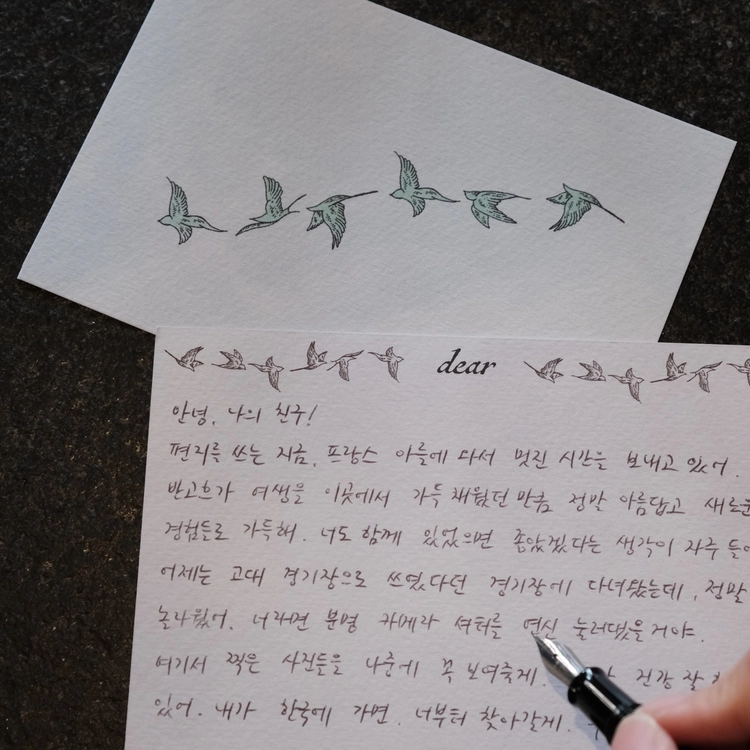 dear
안녕, 나의 친구!
편지를 쓰는 지금, 프랑스 아를에 와서 멋진 시간을 보내고 있어.
반고흐가 여생을 이곳에서 가득 채웠던 만큼 정말 아름답고 새로운
경험들로 가득해. 너도 함께 있었으면 좋았겠다는 생각이 자주 들어
어제는 고대 경기장으로 쓰였다던 경기장에 다녀왔는데, 정말
놀라웠어. 너라면 분명 카메라 셔터를 연신 눌러댔을거야.
여기서 찍은 사진들을 나중에 꼭 보여줄게. 건강 잘
있어. 내가 한국에 가면, 너부터 찾아갈게.